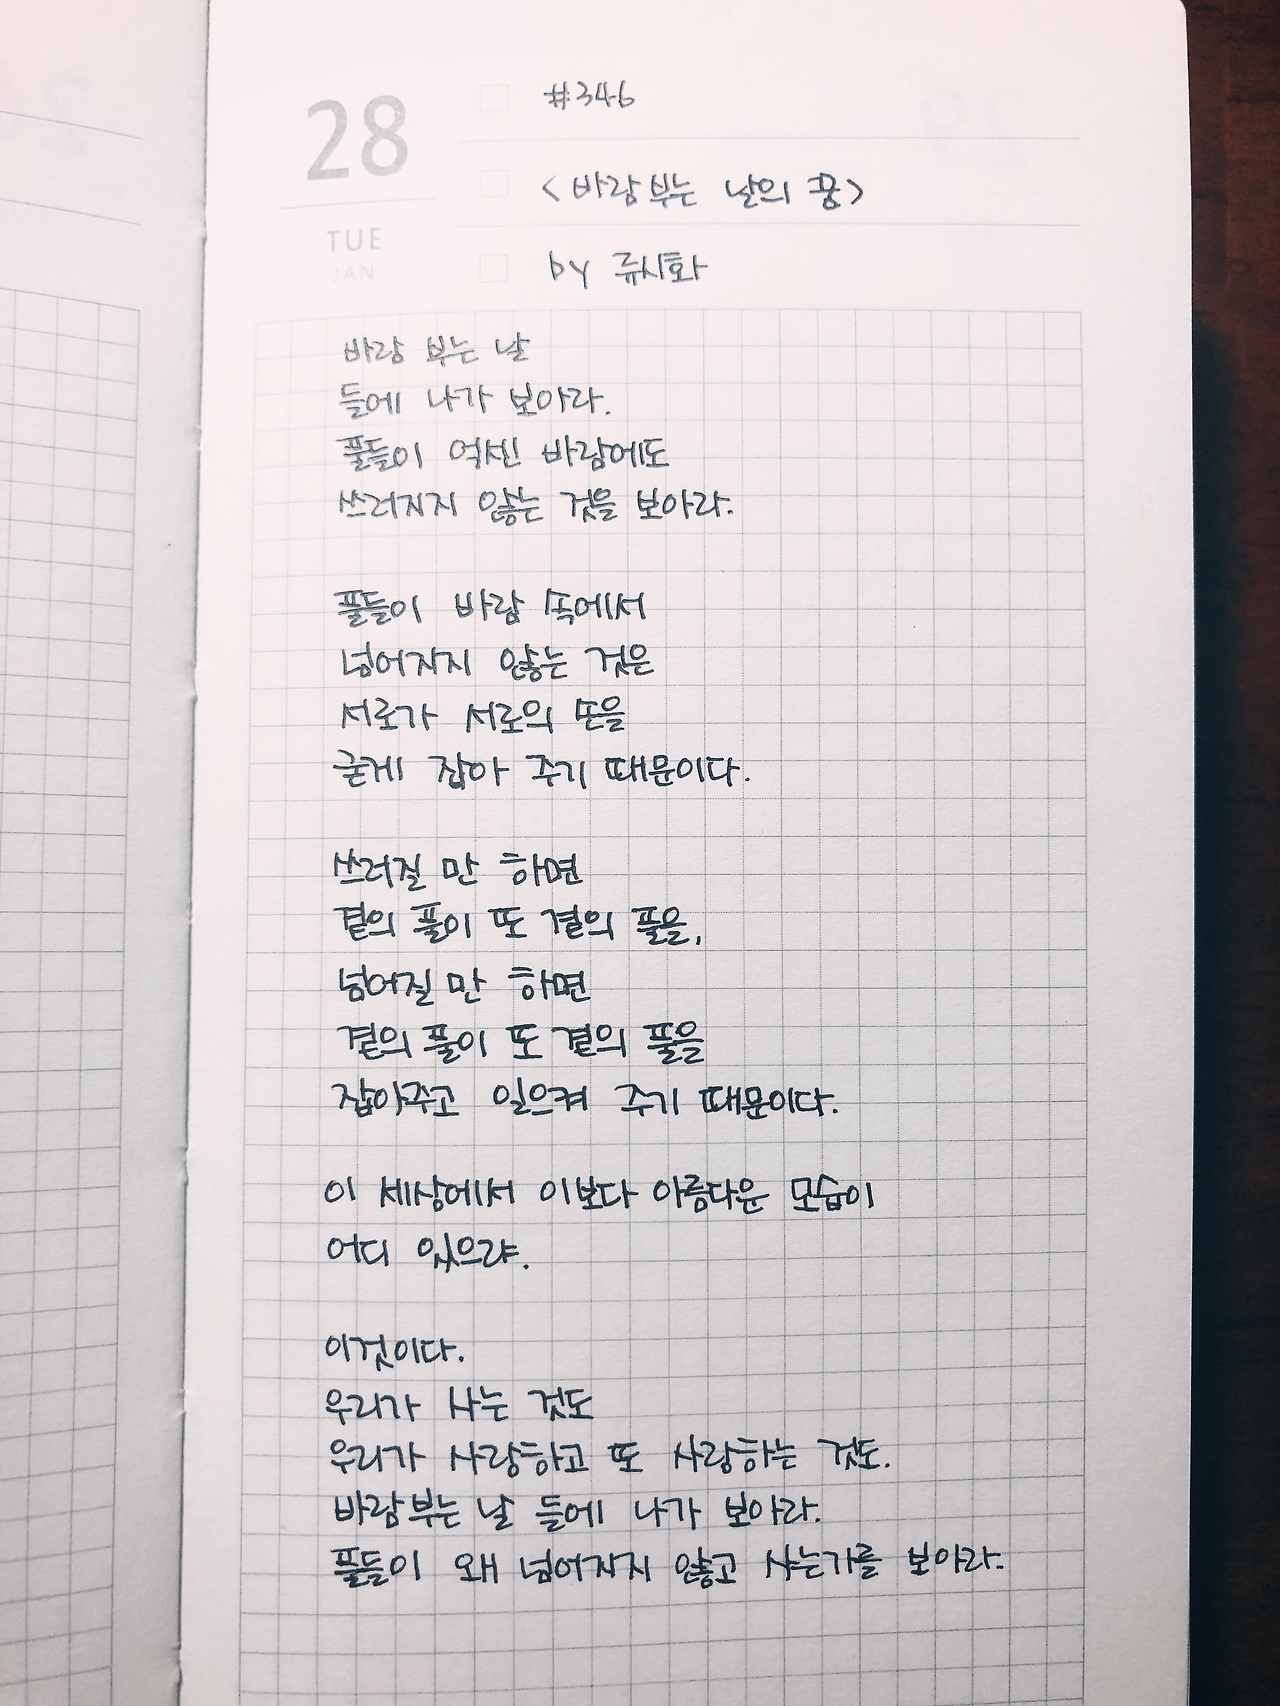 28
TUE
JAN
#346
<바람부는 날의 꿈>
by 류시화
바람 부는 날
들에 나가 보아라.
풀들이 억센 바람에도
쓰러지지 않는 것을 보아라.
풀들이 바람 속에서
넘어지지 않는 것은
서로가 서로의 손을
굳게 잡아 주기 때문이다.
쓰러질 만 하면
곁의 풀이 또 곁의 풀을,
넘어질 만 하면
곁의 풀이 또 곁의 풀을
잡아주고 일으켜 주기 때문이다.
이 세상에서 이보다 아름다운 모습이
어디 있으랴.
이것이다.
우리가 사는 것도
우리가 사랑하고 또 사랑하는 것도.
바람부는 날 들에 나가 보아라.
풀들이 왜 넘어지지 않고 사는가를 보아라.